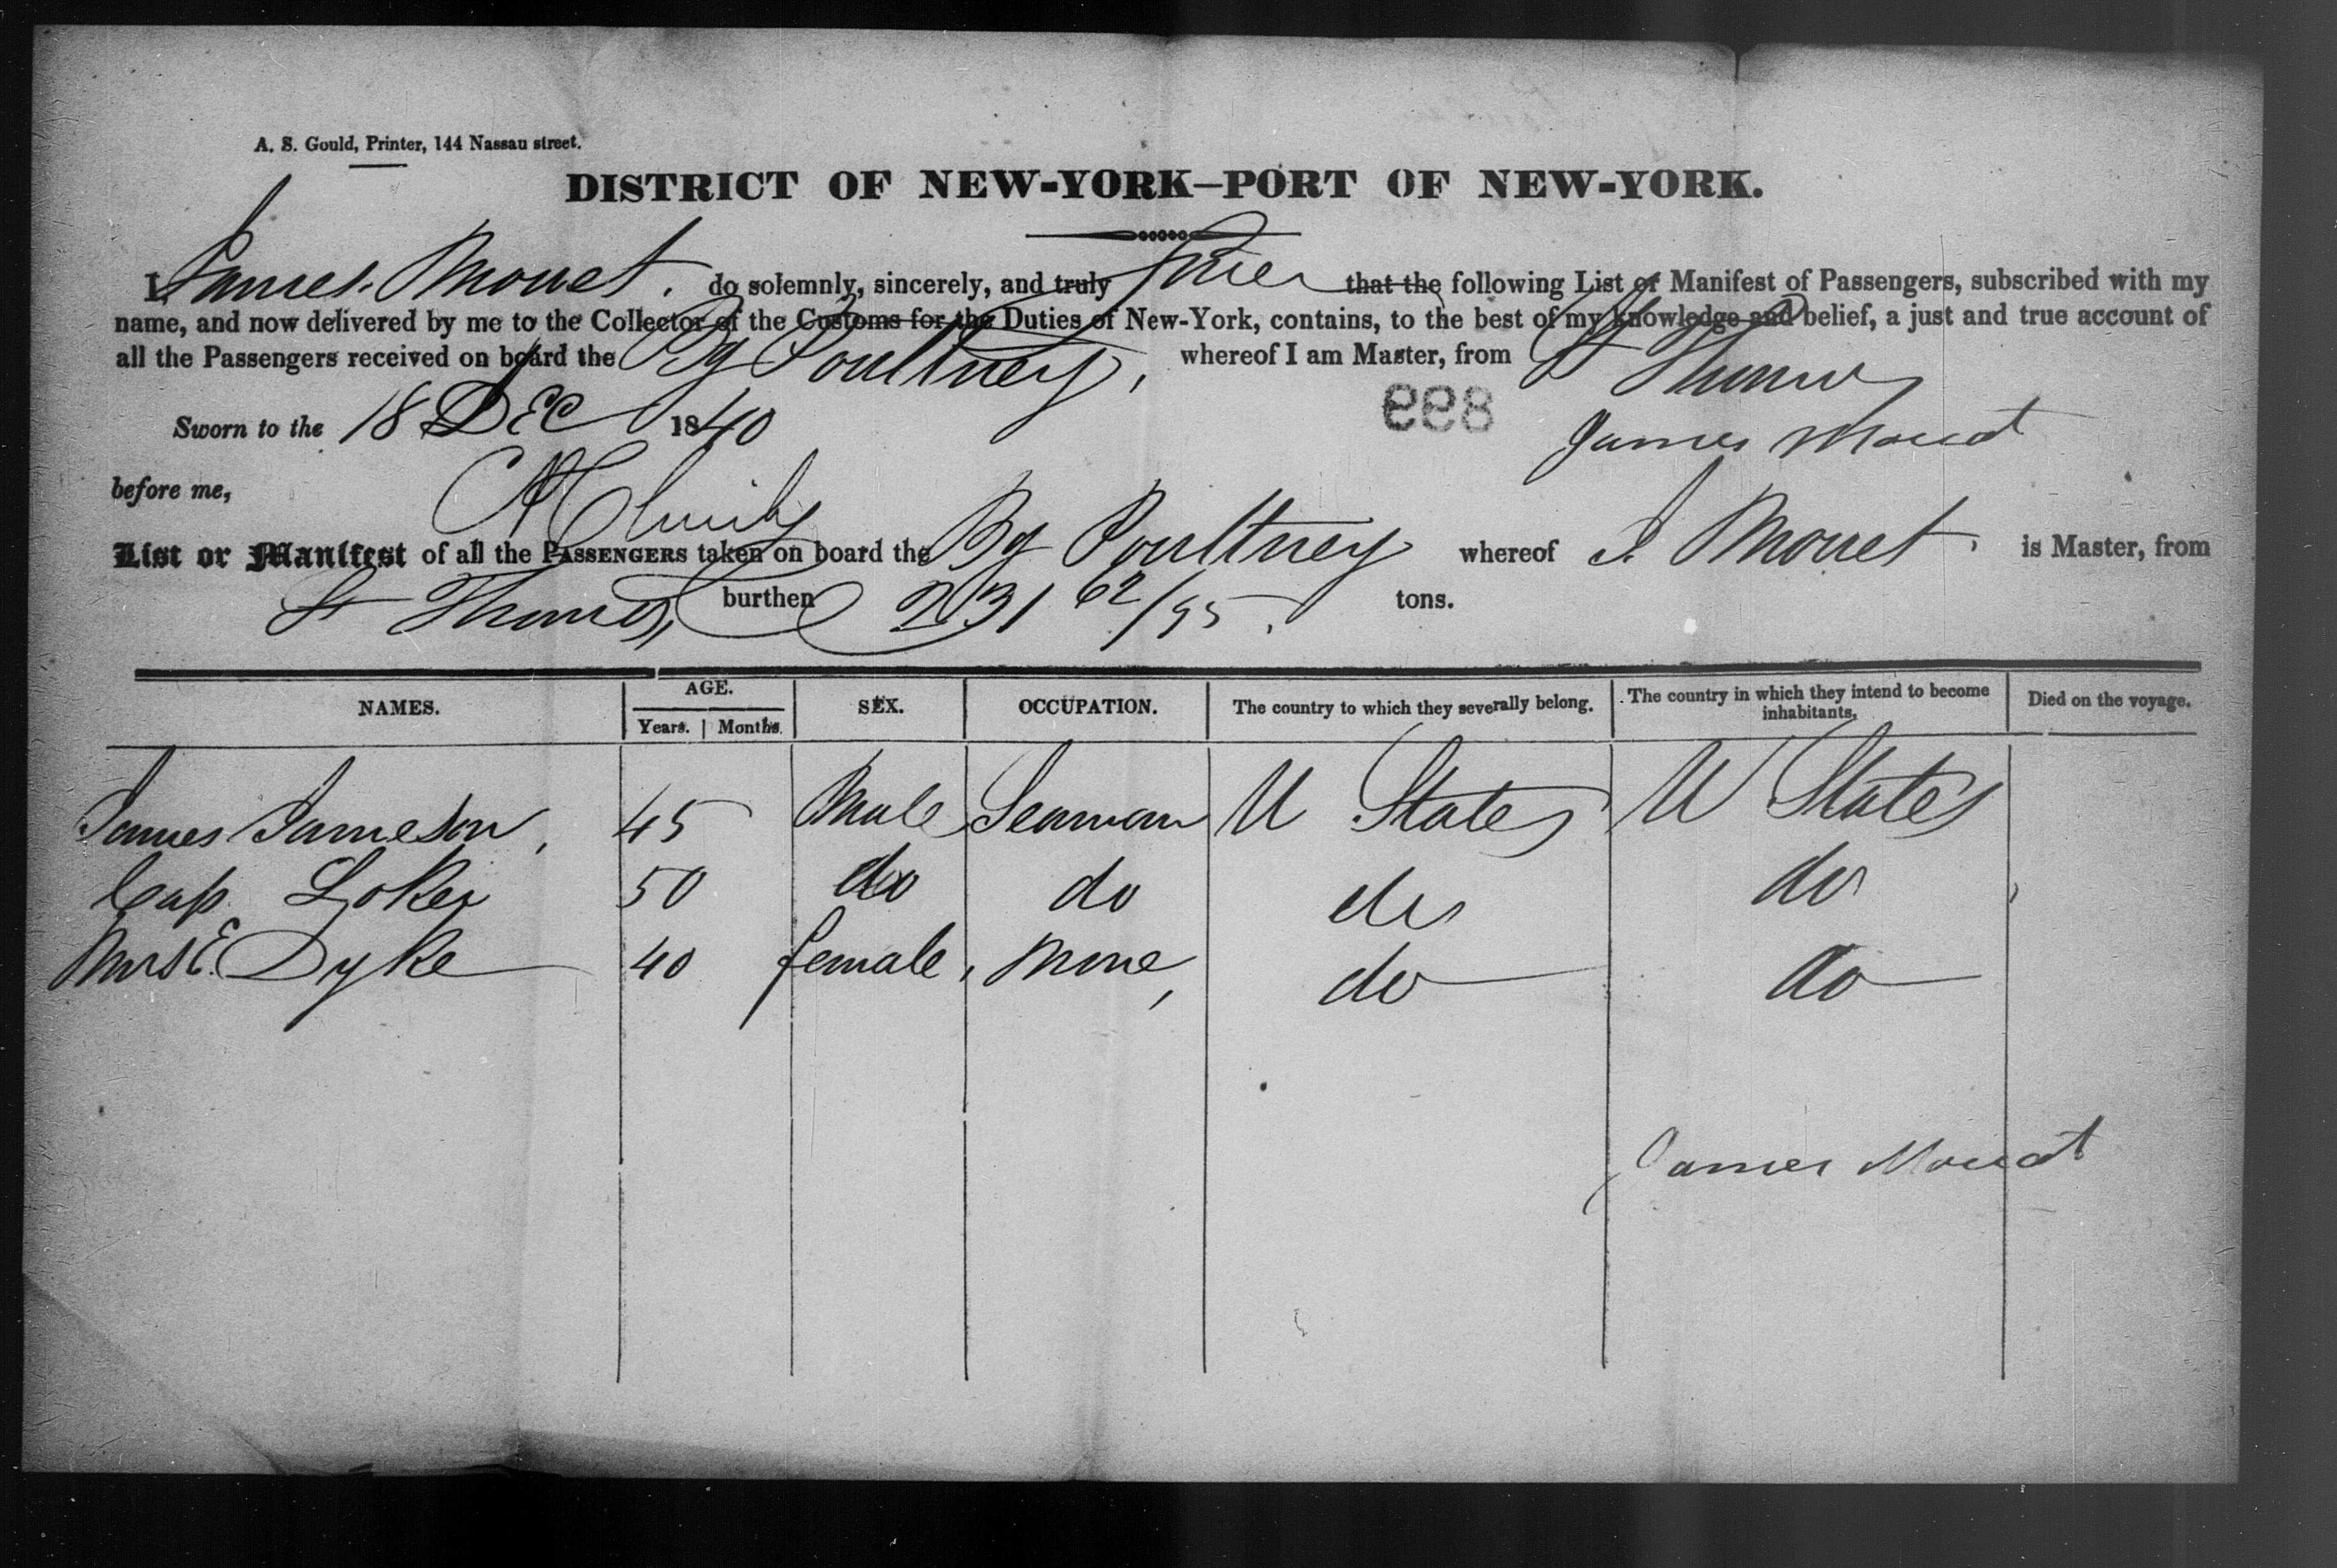 A. S. Gould, Printer, 144 Nassau street.
DISTRICT OF NEW-YORK—PORT OF NEW-YORK.
I James Mouet. do solemnly, sincerely, and truly that the following List or Manifest of Passengers, subscribed with my
name, and now delivered by me to the Collector of the Customs for the Duties of New-York, contains, to the best of my knowledge and belief, a just and true account of
all the Passengers received on board the Bg Poultney, whereof I am Master, from St Thomas
Sworn to the 18 DEC 1840
899
James Mouat
before me,
List or Manifest of all the PASSENGERS taken on board the Bg Poultney whereof J. Mouet. is Master, from
St Thomas, burthen 231 62/95. tons.
NAMES. AGE. SEX. OCCUPATION. The country to which they severally belong. The country in which they intend to become inhabitants. Died on the voyage.
Years. Months.
James Jameson, 45 Male Seaman U States U States
Cap Loker 50 do do do do
Mrs E. Dyke 40 female, None, do do
James Mouat